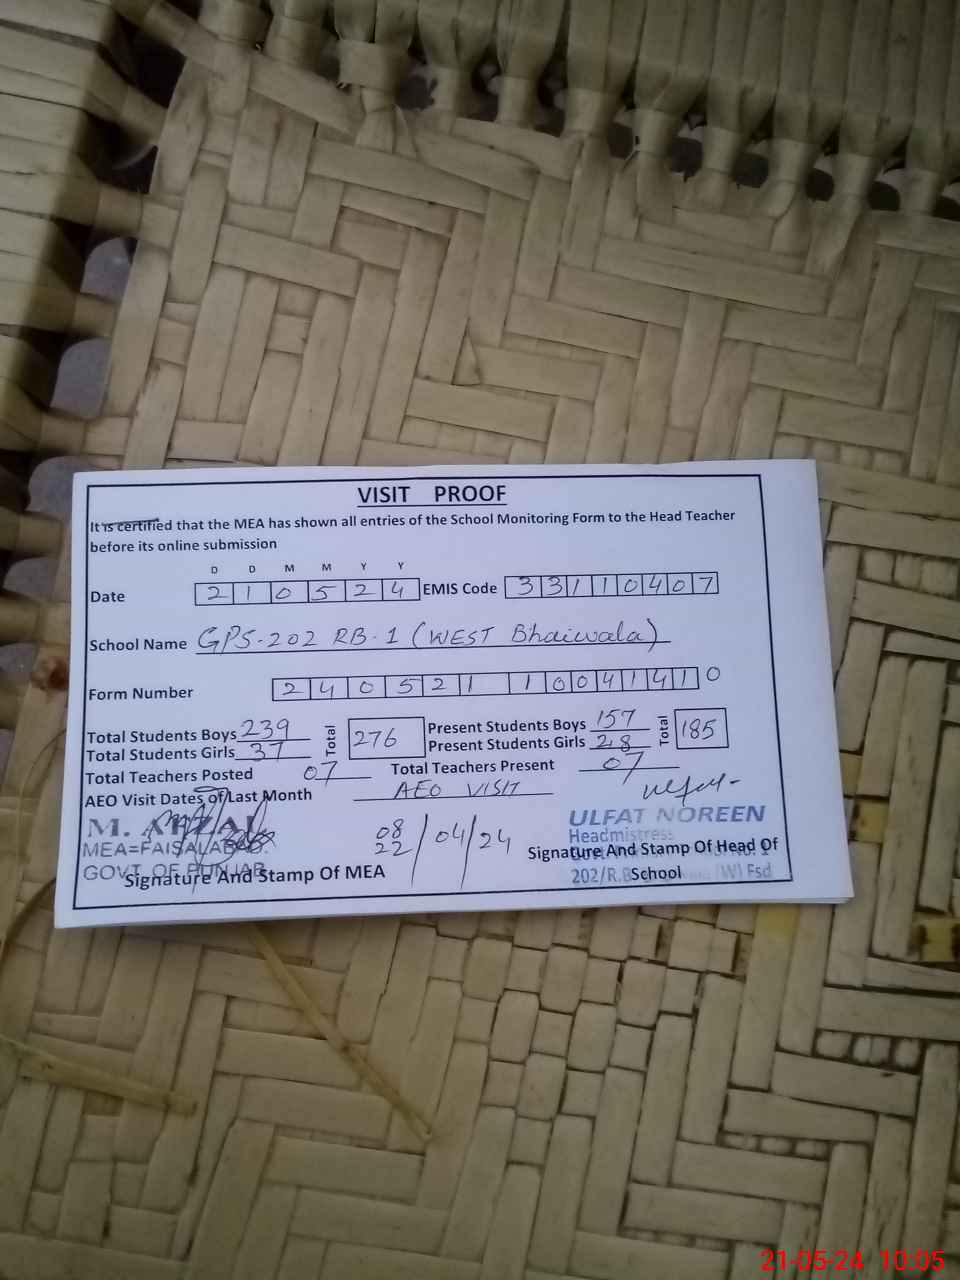 VISIT PROOF
It is certified that the MEA has shown all entries of the School Monitoring Form to the Head Teacher
before its online submission
D D M M Y Y
Date 2 1 0 5 2 4 EMIS Code 3 3 1 1 0 4 0 7
School Name GPS-202 RB-1 (WEST Bhaiwala)
Form Number 2 4 0 5 2 1 1 0 0 4 1 4 1 0
Total Students Boys 239 Total 276 Present Students Boys 157 Total 185
Total Students Girls 37 Present Students Girls 28
Total Teachers Posted 07 Total Teachers Present 07
AEO Visit Dates of Last Month AEO VISIT
M. AFZAL 08 22 /04/24 ULFAT NOREEN
MEA=FAISALABAD. Headmistress
GOVT. OF PUNJAB Signature And Stamp Of Head Of
Signature And Stamp Of MEA 202/R.B School (W) Fsd
21-05-24 10:05